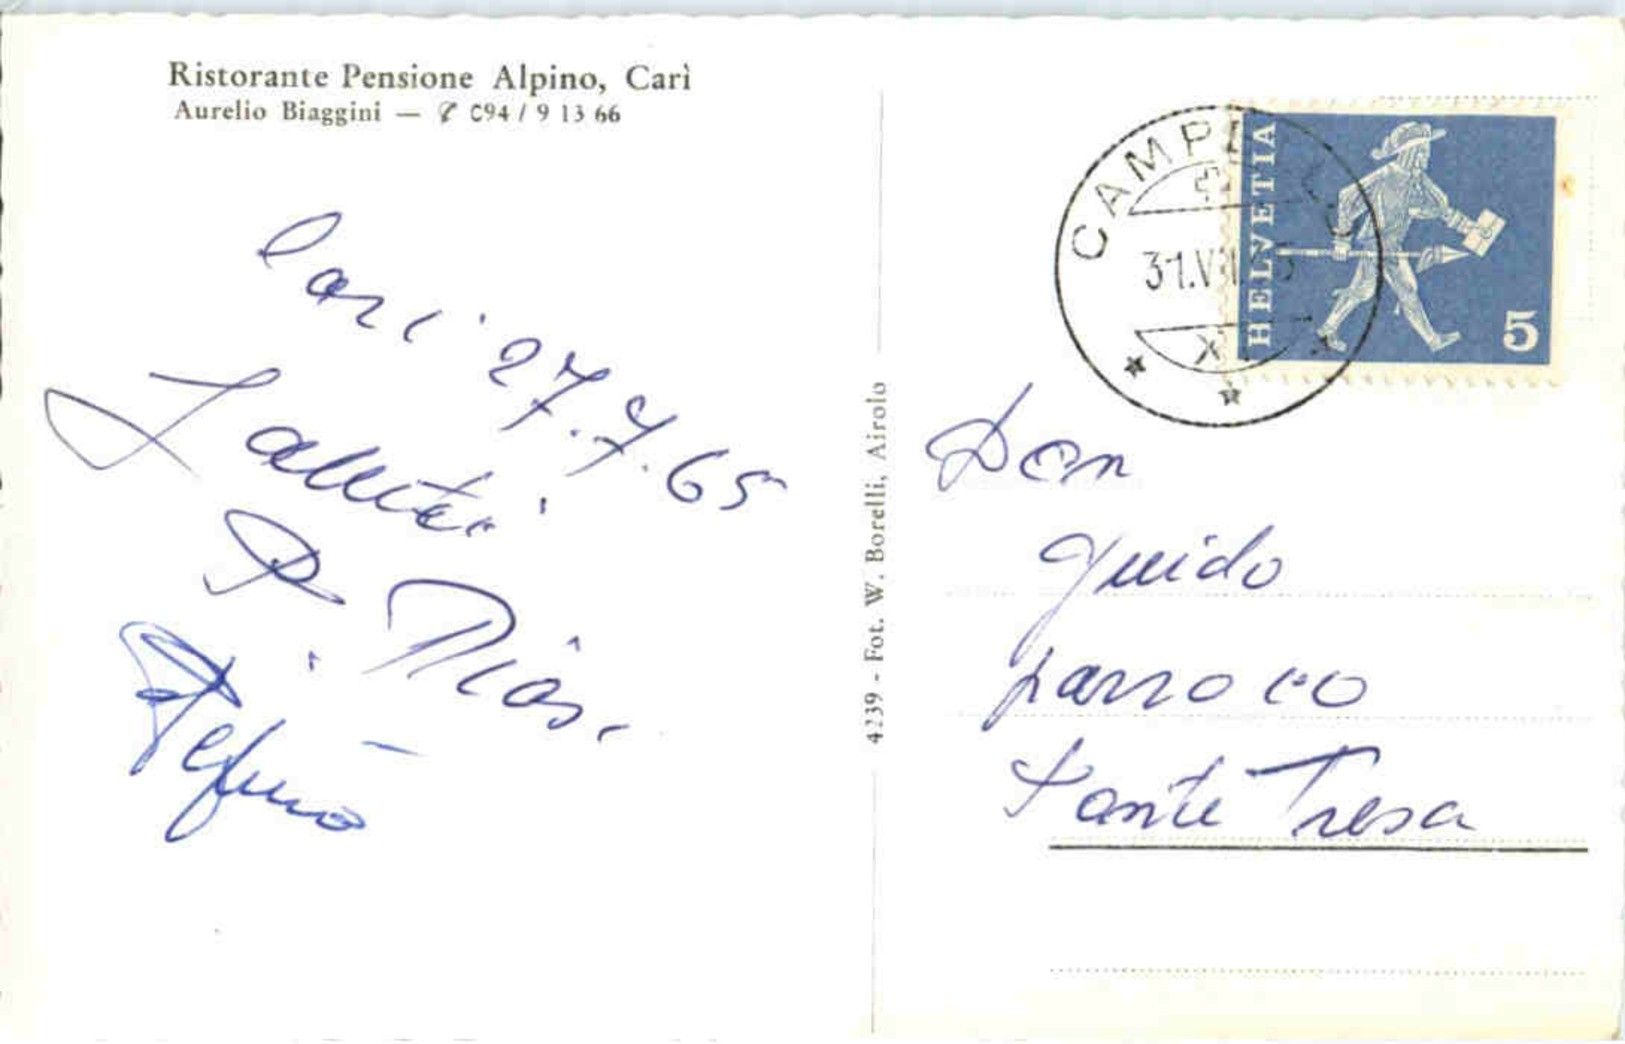 Ristorante Pensione Alpino, Carì
Aurelio Biaggini — ✆ 094 / 9 13 66
Cari 27.7.65
Saluti
4239 - Fot. W. Borelli, Airolo
HELVETIA
5
31.VII.
XI
Don
Guido
parroco
Ponte Tresa